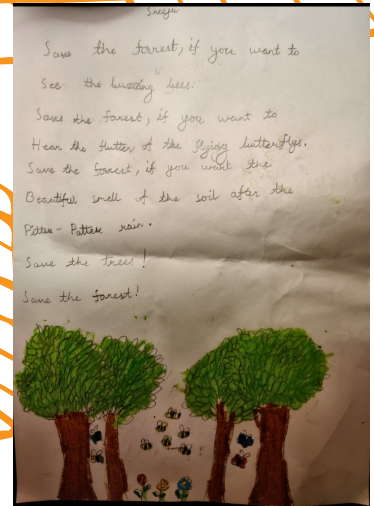 Save the forrest, if you want to
See the buzzing bees.
Save the forest, if you want to
Hear the flutter of the flying butterflys.
Save the forest, if you want the
Beautiful smell of the soil after the
Pitter-Patter rain.
Save the trees!
Save the forest!